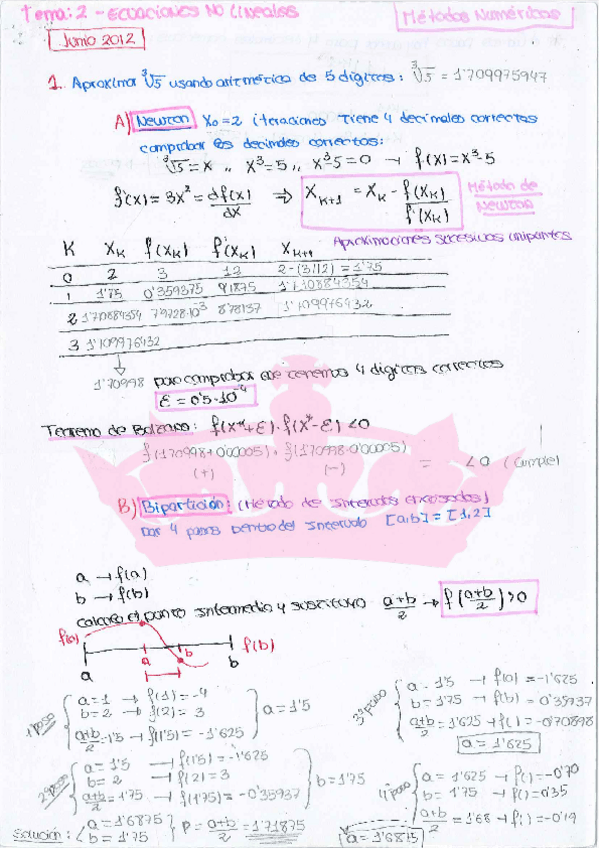 Tema: 2 - ECUACIONES NO LINEALES
Métodos Numéricos
Junio 2012
1. Aproximar ³√5 usando aritmética de 5 dígitos: ³√5 = 1'709975947
A) Newton X₀=2 iteraciones tiene 4 decimales correctos
comprobar los decimales correctos:
³√5 = x ,, x³=5 ,, x³-5=0 → f(x)=x³-5
f'(x) = 3x² = df(x)/dx ⇒ X_{k+1} = X_k - f(X_k)/f'(X_k)
Método de Newton
K X_k f(X_k) f'(X_k) X_{k+1}
Aproximaciones sucesivas
0 2 3 12 2-(3/12) = 1'75
1 1'75 0'359375 9'1875 1'710884354
2 1'710884354 7'9728·10⁻³ 8'78137 1'709976432
3 1'709976432
1'70998 para comprobar que tenemos 4 dígitos correctos
ε = 0'5·10⁻⁴
Teorema de Bolzano: f(x*+ε)·f(x*-ε)<0
f(1'70998+0'00005) · f(1'70998-0'00005)
(+) (-) = <0 (cumple)
B) Bipartición: (Método de Intervalos encajados)
Dar 4 pasos dentro del intervalo [a,b] = [1,2]
a → f(a)
b → f(b)
calcular el punto intermedio y sustituirlo a+b/2 → f(a+b/2)>0
f(a) f(b)
a a b b
1º paso
a=1 → f(1) = -4
b=2 → f(2) = 3
a+b/2 = 1'5 → f(1'5) = -1'625
a = 1'5
2º paso
a = 1'5 → f(1'5) = -1'625
b = 2 → f(2) = 3
a+b/2 = 1'75 → f(1'75) = -0'35937
b = 1'75
3º paso
a = 1'5 → f(a) = -1'625
b = 1'75 → f(b) = 0'35937
a+b/2 = 1'625 → f( ) = -0'70898
a = 1'625
4º paso
a = 1'625 → f( ) = -0'70
b = 1'75 → f( ) = 0'35
a+b/2 = 1'68 → f( ) = -0'19
a = 1'6875
Solución: a = 1'6875
b = 1'75
P = a+b/2 = 1'71875